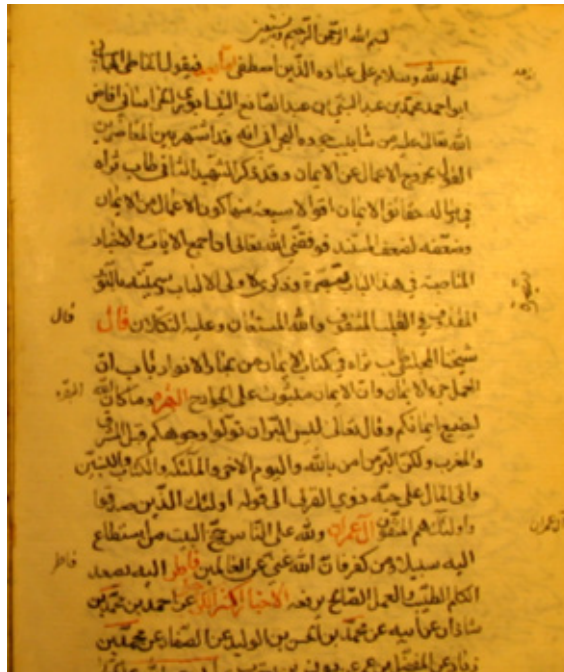 بسم الله الرحمن الرحيم وبه نستعين
الحمد لله وسلام على عباده الذين اصطفى فيقول الخاطى الجانى
ابو احمد محمد بن عبد النبي بن عبد الصانع النيسابورى الخراسانى افاض
الله تعالى عليه من شابيب جوده البحرانى انه قد اشتهر بين المعاصرين
القول بخروج الاعمال عن الايمان وقد ذكر الشهيد الثانى طاب ثراه
فى رسالة حقائق الايمان اقوالا سبعة منها كون الاعمال من الايمان
وضعفه لضعف المستند فوفقنى الله تعالى ان اجمع الايات والاخبار
فى هذا الباب تبصرة وذكرى لاولى الالباب
والله المستعان وعليه التكلان قال
قال
شيخنا المجلسى طاب ثراه فى كتاب الايمان من بحار الانوار باب ان
العمل جزء الايمان وان الايمان مبثوث على الجوارح البقره وما كان الله
البقره
ليضيع ايمانكم وقال تعالى ليس البر ان تولوا وجوهكم قبل المشرق
والمغرب ولكن البر من امن بالله واليوم الاخر والملئكة والكتاب والنبيين
واتى المال على حبه ذوى القربى الى قوله اولئك الذين صدقوا
واولئك هم المتقون آل عمران ولله على الناس حج البيت من استطاع
آل عمران
اليه سبيلا ومن كفر فان الله غنى عن العالمين فاطر اليه يصعد
فاطر
الكلم الطيب والعمل الصالح يرفعه عن احمد بن محمد بن
شاذان عن ابيه عن محمد بن الحسن بن الوليد عن الصفار عن محمد بن